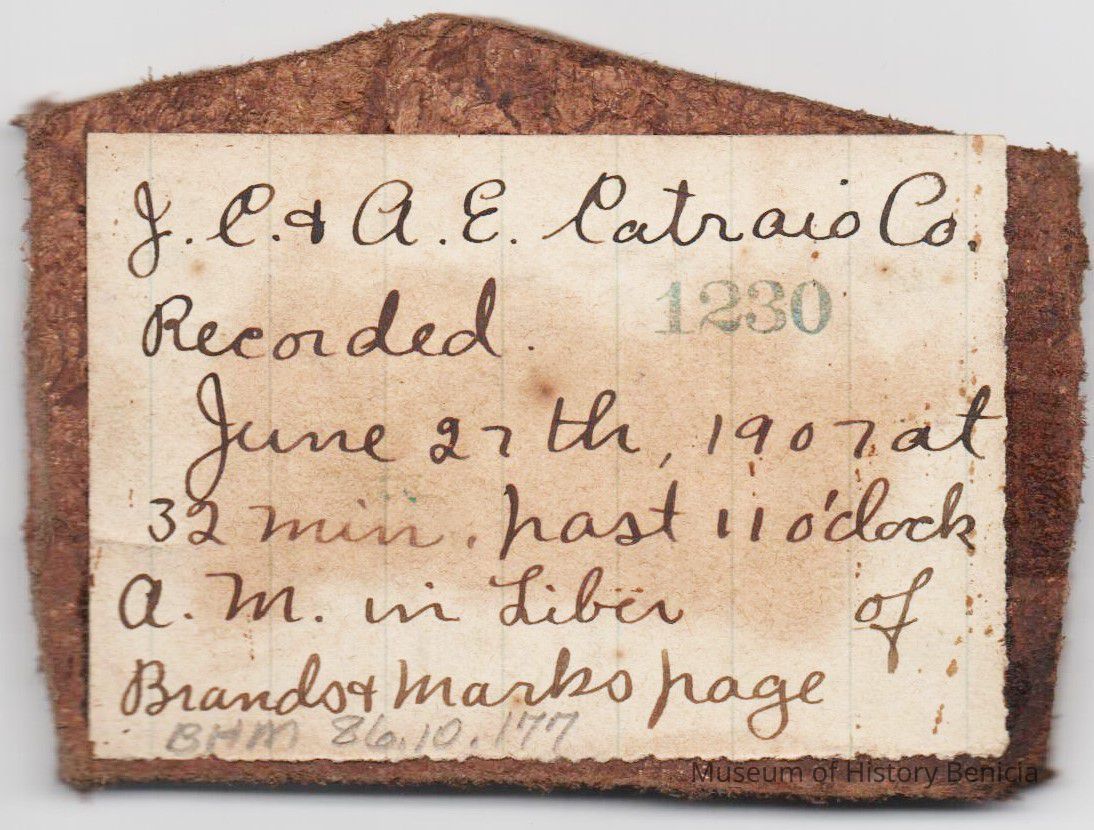 J. C. & A. E. Catraio Co.
Recorded. 1230
June 27th, 1907 at
32 min. past 11 o'clock
A. M. in Liber of
Brands & Marks page
BHM 86.10.177
Museum of History Benicia